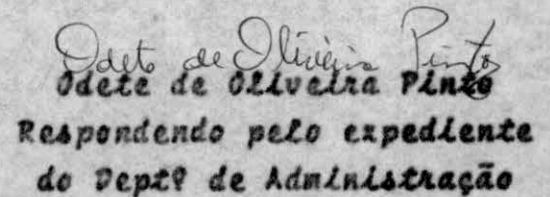 Odete de Oliveira Pinto
Odete de Oliveira Pinto
Respondendo pelo expediente
do Deptº de Administração